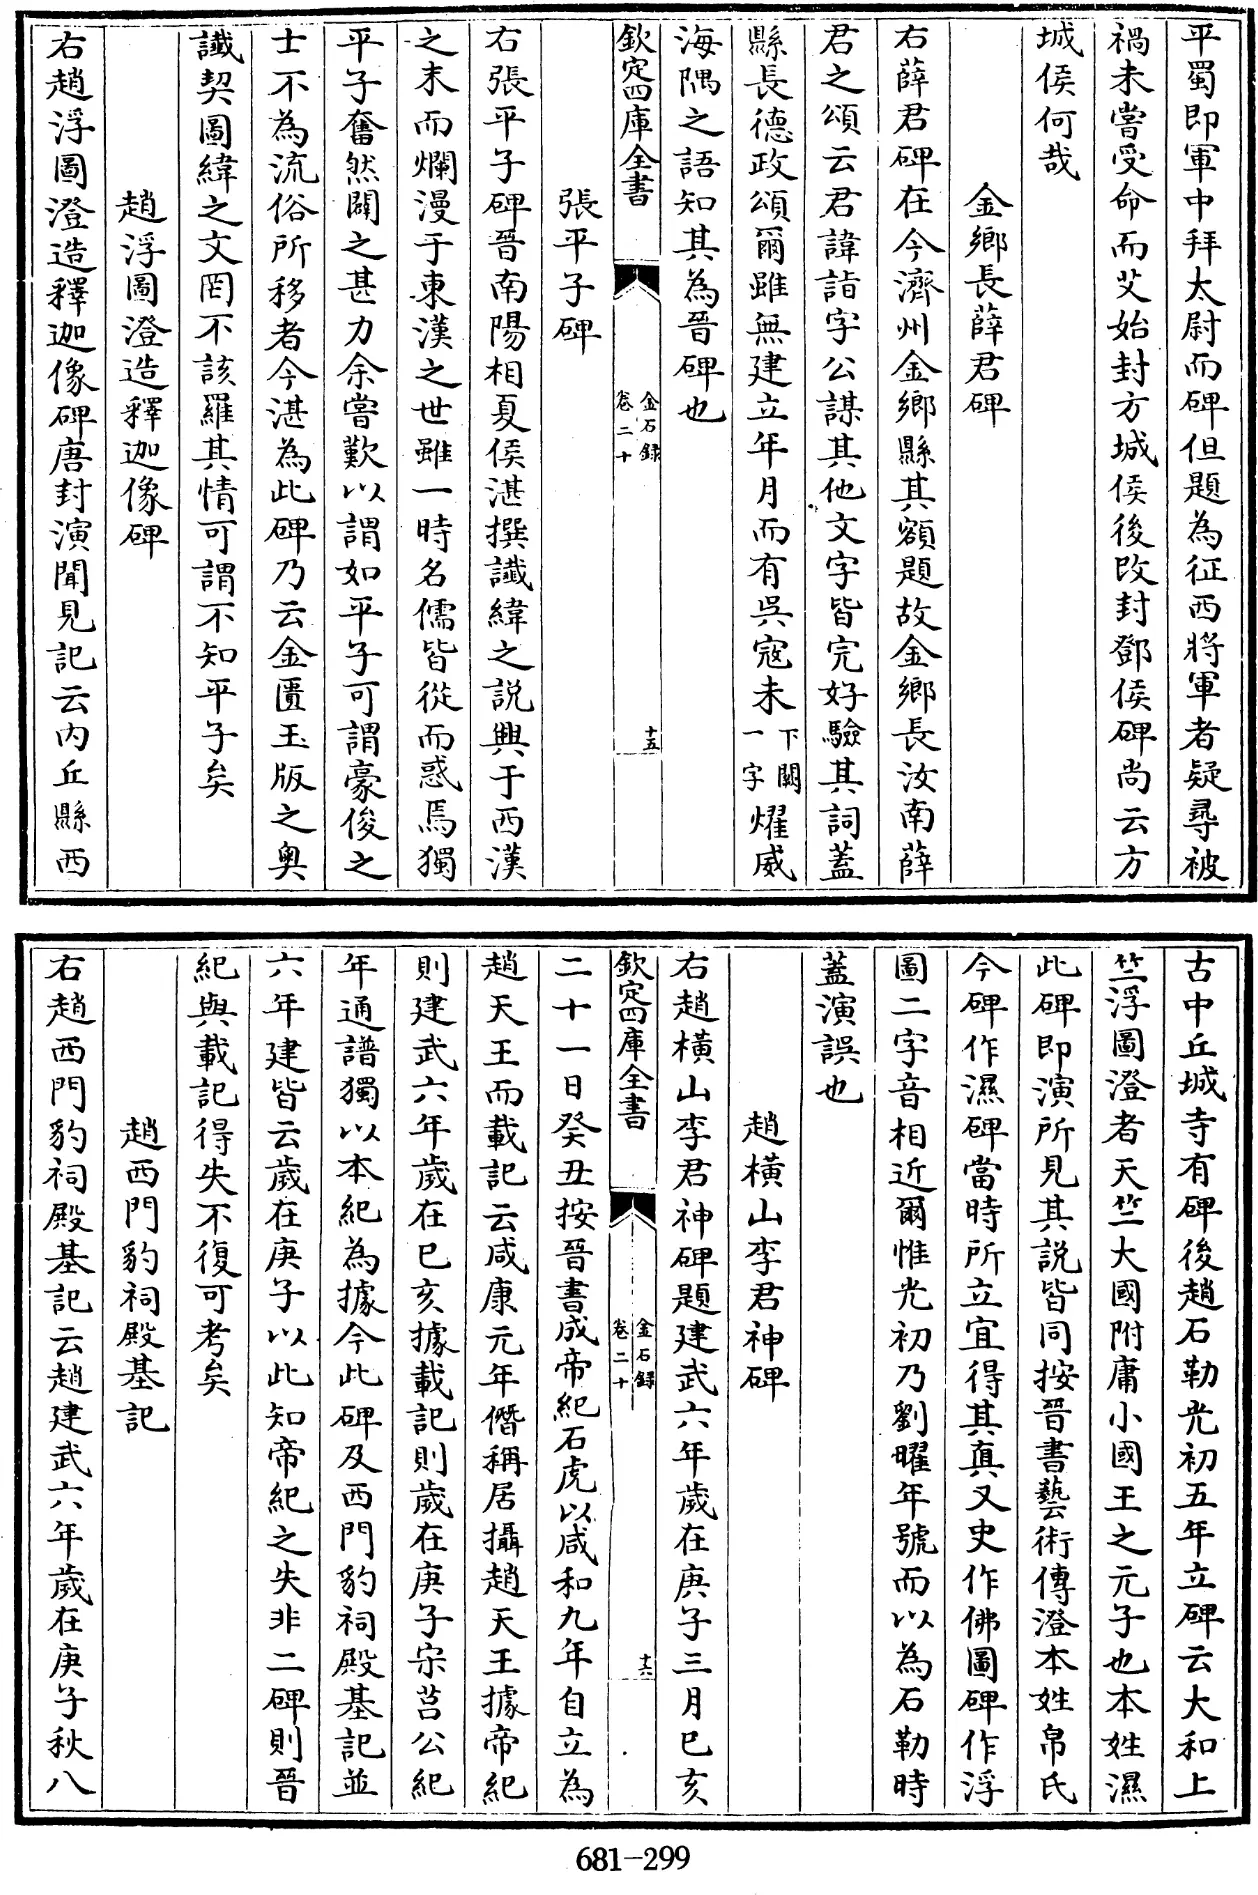 平蜀即軍中拜太尉而碑但題為征西將軍者疑尋被
禍未嘗受命而艾始封方城侯後改封鄧侯碑尚云方
城侯何哉
金鄉長薛君碑
右薛君碑在今濟州金鄉縣其額題故金鄉長汝南薛
君之頌云君諱詣字公謀其他文字皆完好驗其詞蓋
縣長德政頌爾雖無建立年月而有吳寇未下闕一字燿威
海隅之語知其為晉碑也
欽定四庫全書
金石録
卷二十
十五
張平子碑
右張平子碑晉南陽相夏侯湛撰讖緯之說興于西漢
之末而爛漫于東漢之世雖一時名儒皆從而惑焉獨
平子奮然闢之甚力余嘗歎以謂如平子可謂豪俊之
士不為流俗所移者今湛為此碑乃云金匱玉版之奥
讖契圖緯之文罔不該羅其情可謂不知平子矣
趙浮圖澄造釋迦像碑
右趙浮圖澄造釋迦像碑唐封演聞見記云内丘縣西
古中丘城寺有碑後趙石勒光初五年立碑云大和上
竺浮圖澄者天竺大國附庸小國王之元子也本姓濕
此碑即演所見其說皆同按晉書藝術傳澄本姓帛氏
今碑作濕碑當時所立宜得其真又史作佛圖碑作浮
圖二字音相近爾惟光初乃劉曜年號而以為石勒時
蓋演誤也
趙橫山李君神碑
右趙橫山李君神碑題建武六年歲在庚子三月巳亥
欽定四庫全書
金石録
卷二十
十六
二十一日癸丑按晉書成帝紀石虎以咸和九年自立為
趙天王而載記云咸康元年僭稱居攝趙天王據帝紀
則建武六年歲在巳亥據載記則歲在庚子宋莒公紀
年通譜獨以本紀為據今此碑及西門豹祠殿基記並
六年建皆云歲在庚子以此知帝紀之失非二碑則晉
紀與載記得失不復可考矣
趙西門豹祠殿基記
右趙西門豹祠殿基記云趙建武六年歲在庚子秋八
681-299